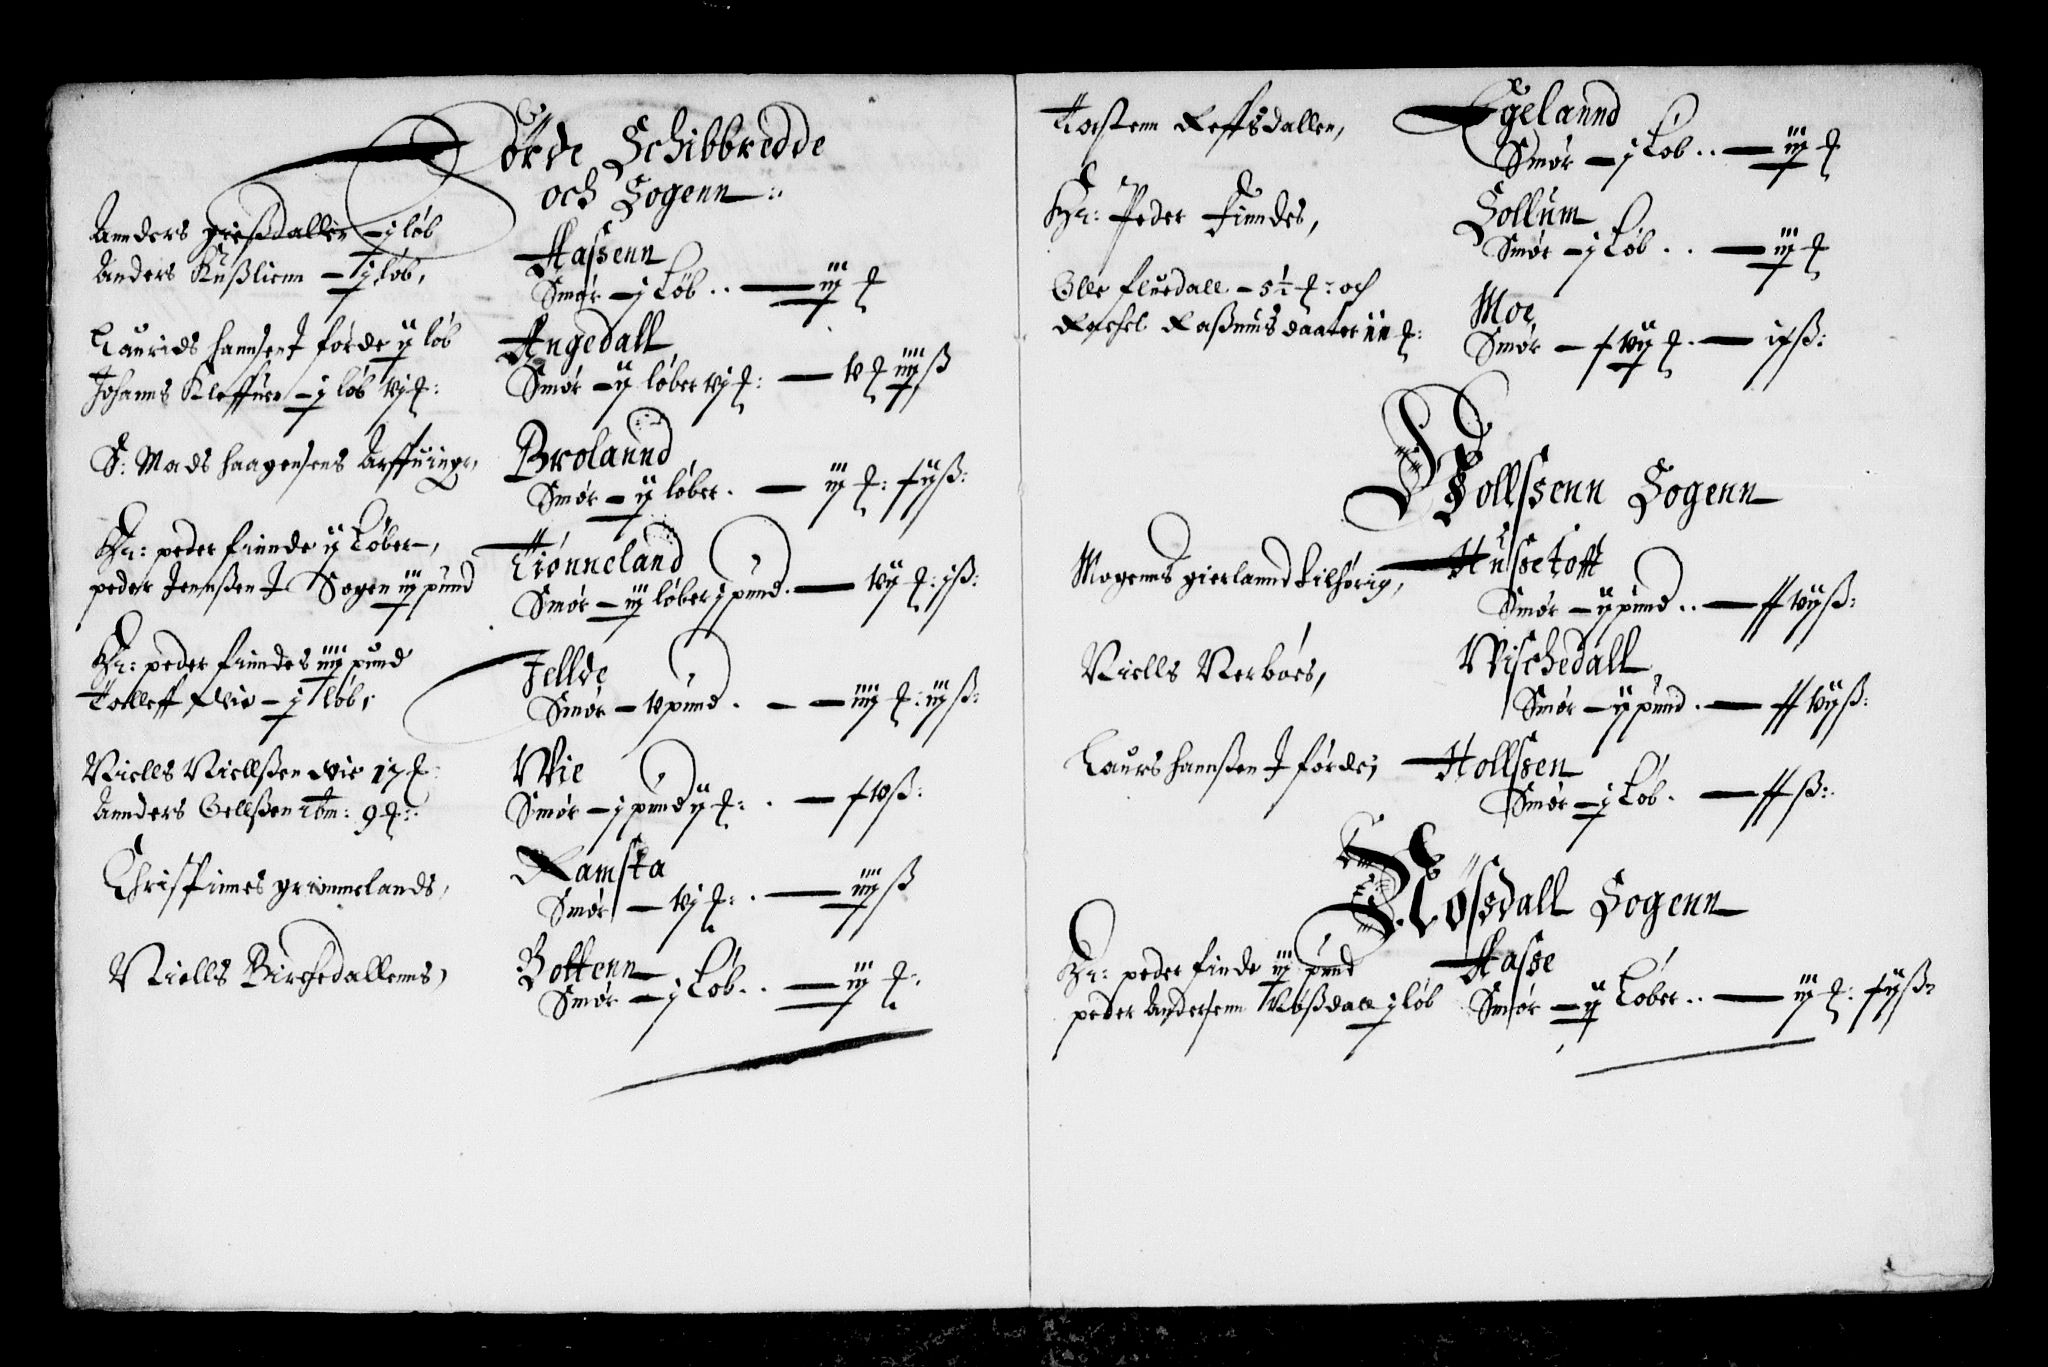 Förde Schibbredde
och Sogenn
Annders gießdallen - j løb
Anders Kußlienn - j løb,
Aassenn
Smør - j Løb .. - iij
Laurids hannsen J førde ij løb
Johanns Kleffuen - j løb vj
Angedall
Smør - ij løber vj - v iiij ß
S: Mads haagensens Arffuinger,
Brolannd
Smør - ij løber . - iij
Hr: peder finnde ij Løber,
peder Jennßen J Sogen iij pund
Tiønneland
Smør - iij løber j pund . - vij : j ß:
Hr: peder finndes iiij pund
Tolleff Wie - j løb;
Jellde
Smør - v pund . - iiij : iij ß:
Niells Niellßen Wie 17
Annders Gellßen ibm: 9
Wie
Smør - j pund ij
Christinnes grimmelands,
Ramsta
Smør - vj . - iiij ß
Niells Birchedallenns,
Bottenn
Smør - j Løb .. - iij
Torstenn Reffsdallen,
Egelannd
Smør - j Løb .. - iij
Hr: Peder Finndes,
Sollum
Smør - j Løb .. - iij
Olle fluedall - 5½ : och
Rachel Raßmus daater
Moe
Smør
Hollssenn Sogenn
Mogenns gierlannd tilhørig,
Hussetofft
Smør - ij pund ..
Niells Nerbøes,
Wischedall
Smør - ij pund .
Laurs hannßen J førde;
Hollssen
Smør - j Løb .
Røssdall Sogenn
Hr: peder finde iij pund
peder Andersenn Røßdall j løb
Aasse
Smør - ij Løber .. - iij